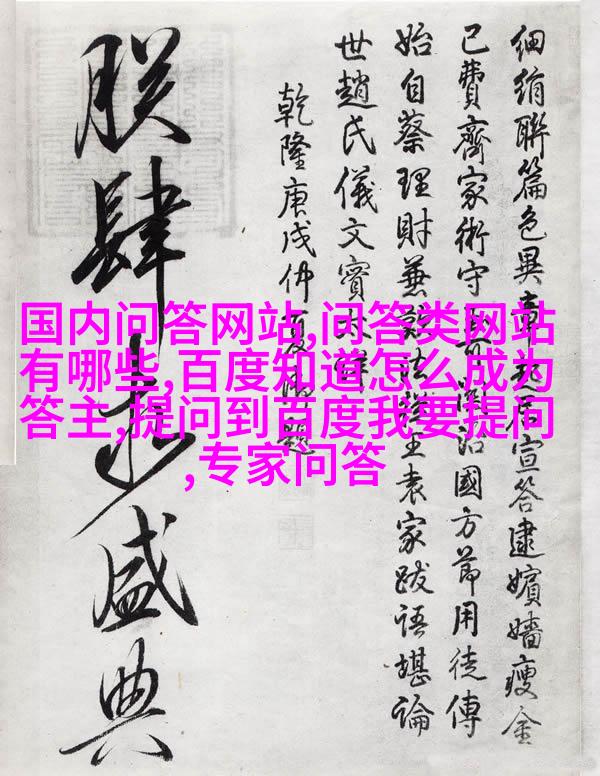 国内问答网站,问答类网站
有哪些,百度知道怎么成为
答主,提问到百度我要提问
,专家问答
細絹聯篇色異章居宣答逮嬪嬙瘦金
已費齊家術守治國方節用徒傳
始自蔡理財兼難法王袁家跋語堪論
世趙氏儀文實
乾隆庚戌仲夏題
肆盛典